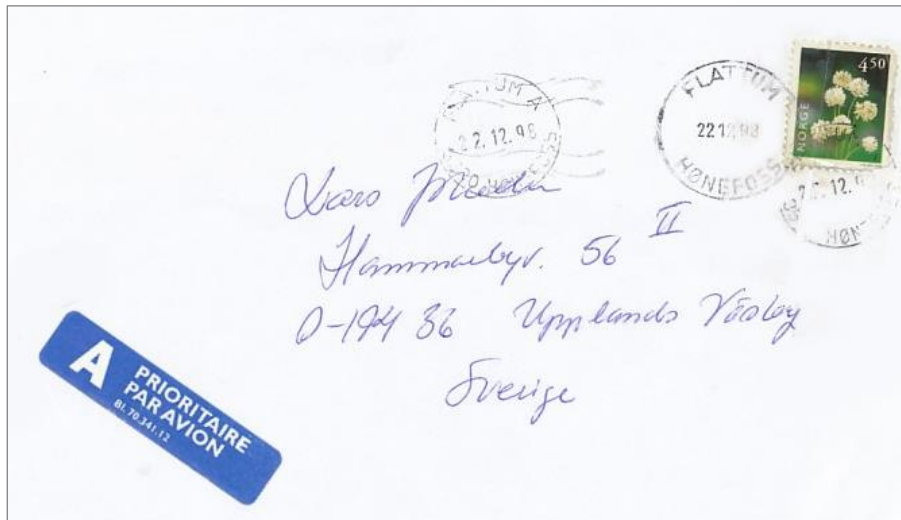 FLATTUM A
22.12.98
FLATTUM
22 12 98
HØNEFOSS
NORGE
450
22.12.9
HØN
Lars
Hammarbyv. 56 II
S-194 36 Upplands Väsby
Sverige
A
PRIORITAIRE
PAR AVION
Bl. 70.341.12